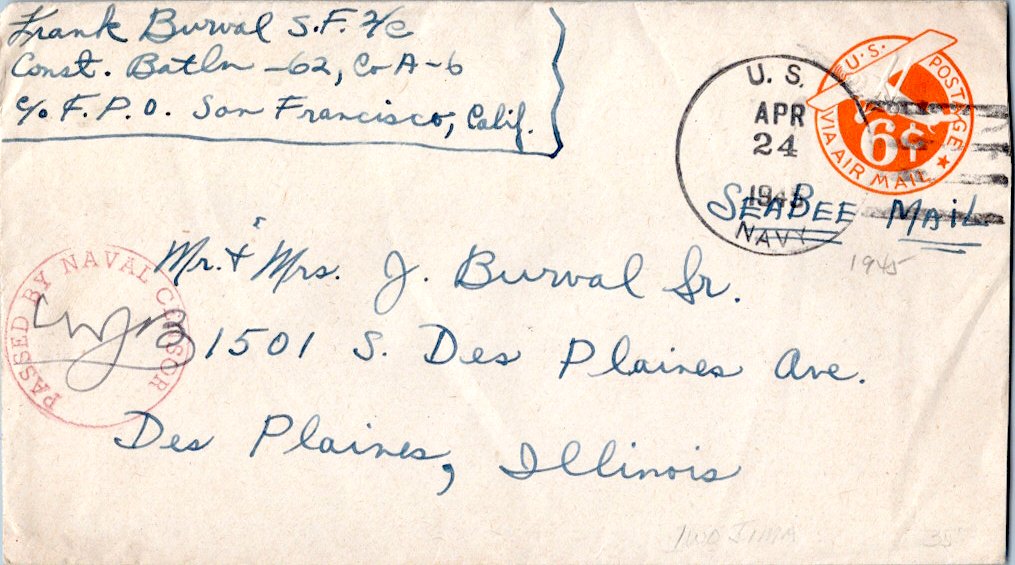 Frank Burval S.F. 2/c
Const. Batln -62, Co A-6
c/o F.P.O. San Francisco, Calif.
U.S. POSTAGE
6¢
VIA AIR MAIL
U. S.
APR
24
1945
NAVY
SEABEE MAIL
1945
Mr. & Mrs. J. Burval Sr.
1501 S. Des Plaines Ave.
Des Plaines, Illinois
PASSED BY NAVAL CENSOR
IWO JIMA